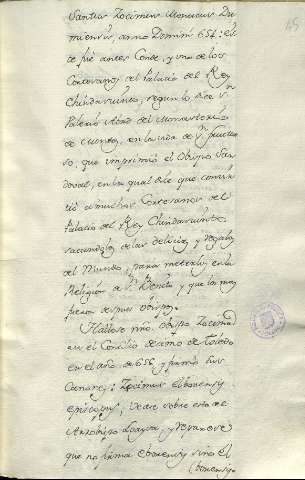 45
Santus Zocimus Monacus Du
miensis, anno Domini 654: el
de fue antes Conde, y uno de los
Cortesanos del Palacio del Rey
Chindasuinto, segun lo dice Sn
Valerio Abad del Monasterio
de Montes, en la vida de Sn fructuo
so, que imprimió el Obispo San
doval, en la qual dice que convir
tió a muchos Cortesanos del
Palacio del Rey Chindasuinto
sacandolos de las delicias, y regalos
del Mundo, para meterlos en la
Religion de Sn Benito y que los mas
fueron despues obispos.
Hallose nro obispo Zocimo
en el Concilio decimo de Toledo
en el año de 656 y firmó sus
Canones: Zocimus Elborensis
Episcopus, Vease sobre esto al
Arzobispo Loaysa, y
que no firma eborensis sino El
borensis.